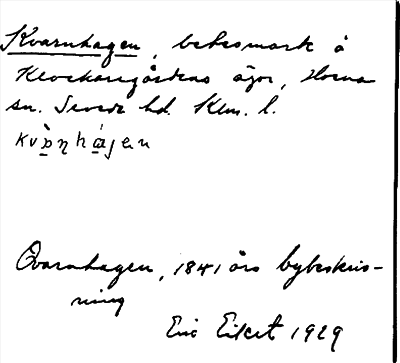 Kvarnhagen, betesmark å
Klockaregårdens ägor, Horna
sn. Sevede hd. Klm. l.
kvὰṇhá̱jen
Qvarnhagen, 1841 års bybeskriv-
ning
Eric Eiket 1929